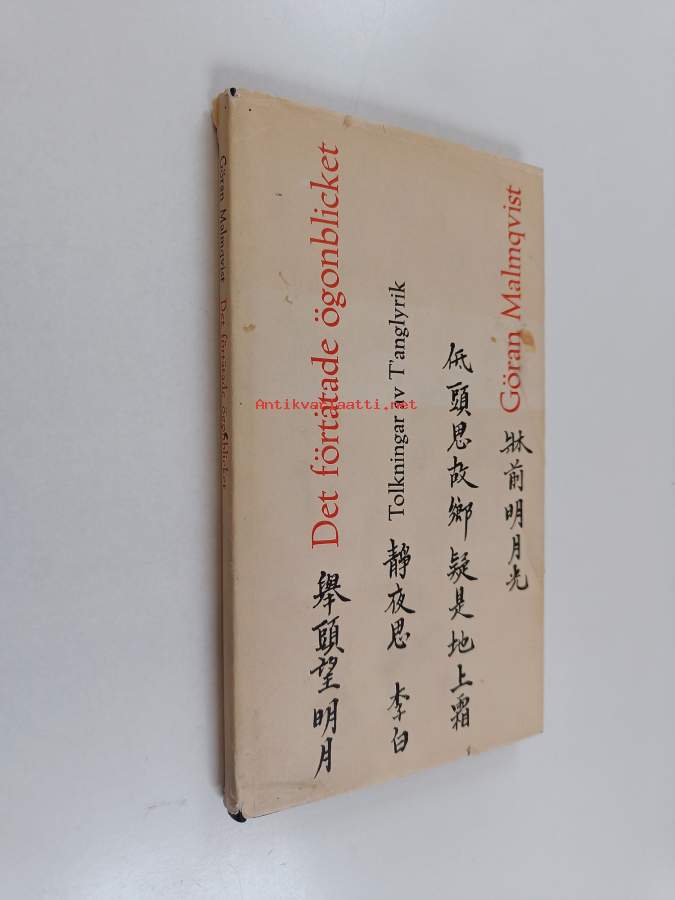 Göran Malmqvist Det förtätade ögonblicket
Det förtätade ögonblicket
舉頭望明月
Tolkningar av T'anglyrik
靜夜思 李白
低頭思故鄉疑是地上霜
Göran Malmqvist
牀前明月光
Antikvariaatti.net